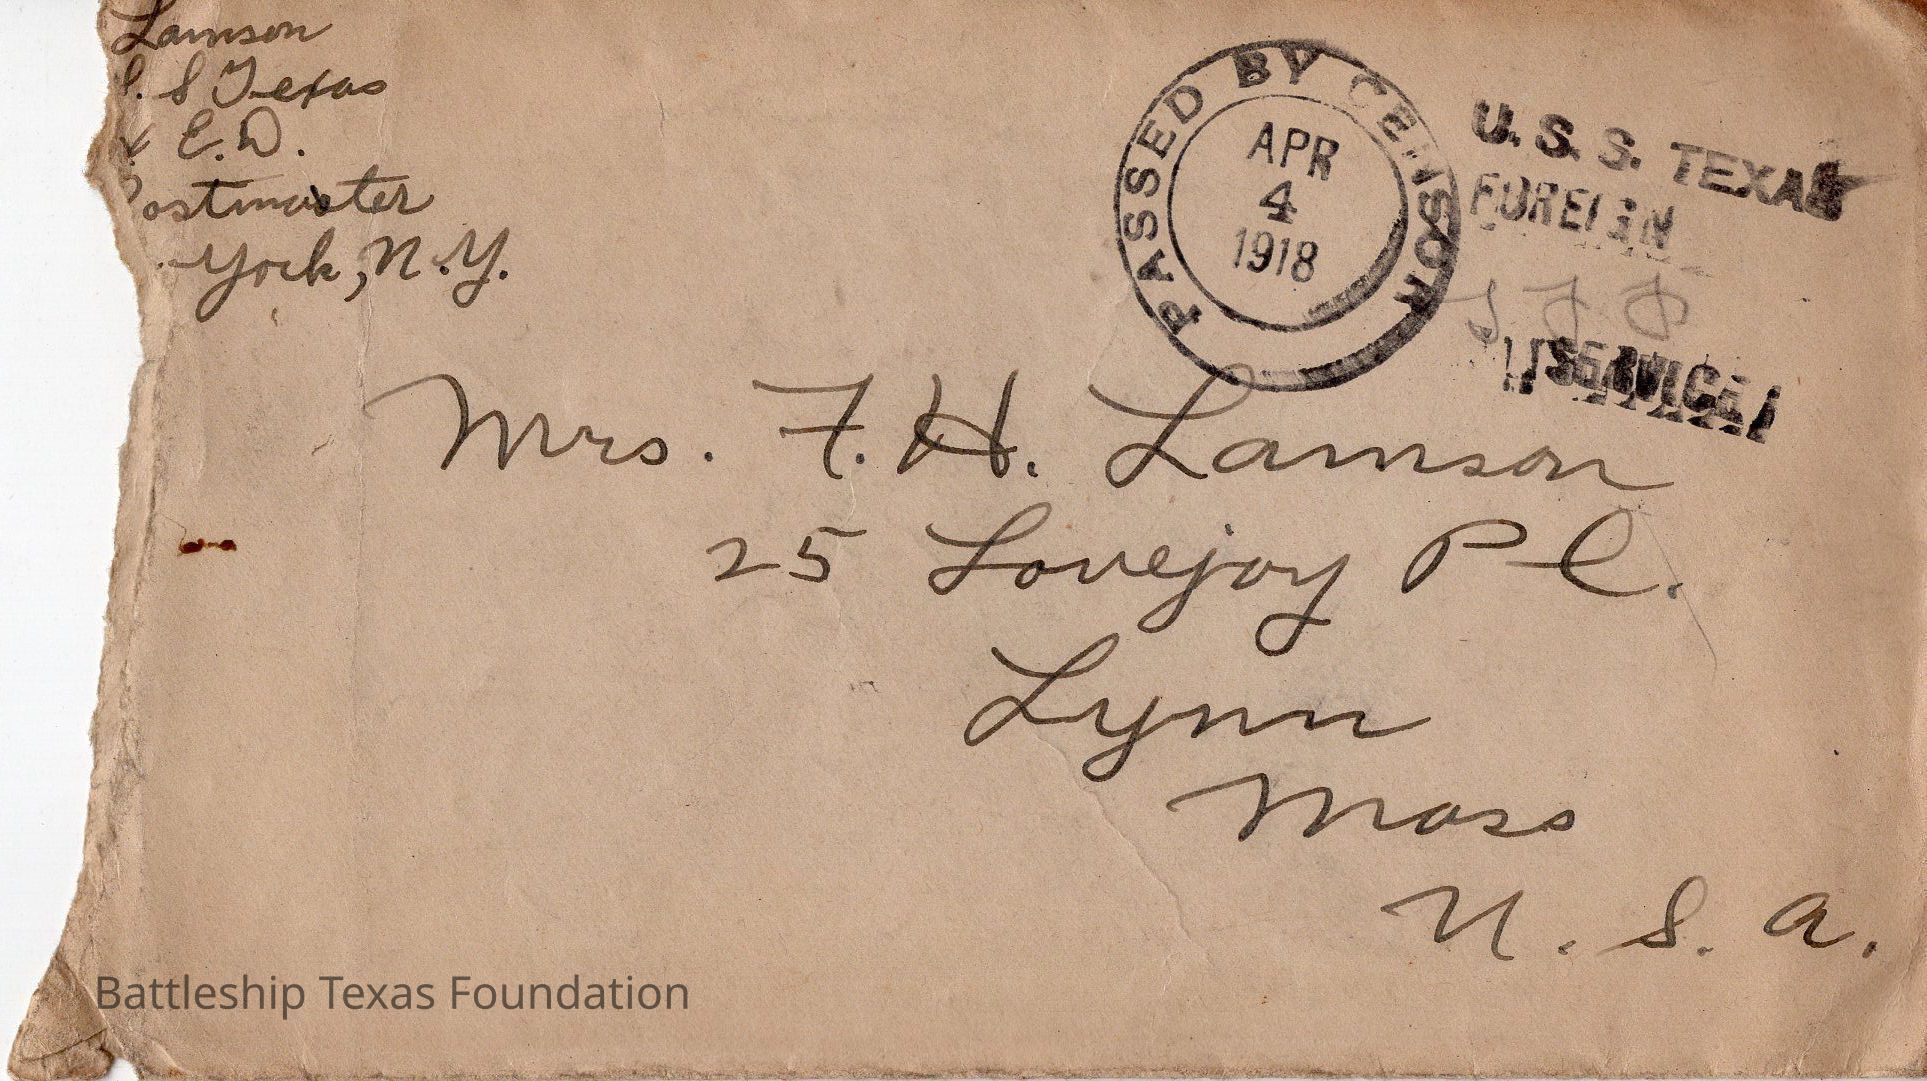 Lamson
S Texas
E.D.
ostmaster
York, N.Y.
PASSED BY CENSOR
APR
4
1918
U.S.S. TEXAS
FOREIGN
SERVICE
Mrs. F. H. Lamson
25 Lovejoy Pl.
Lynn
Mass
U. S. A.
Battleship Texas Foundation